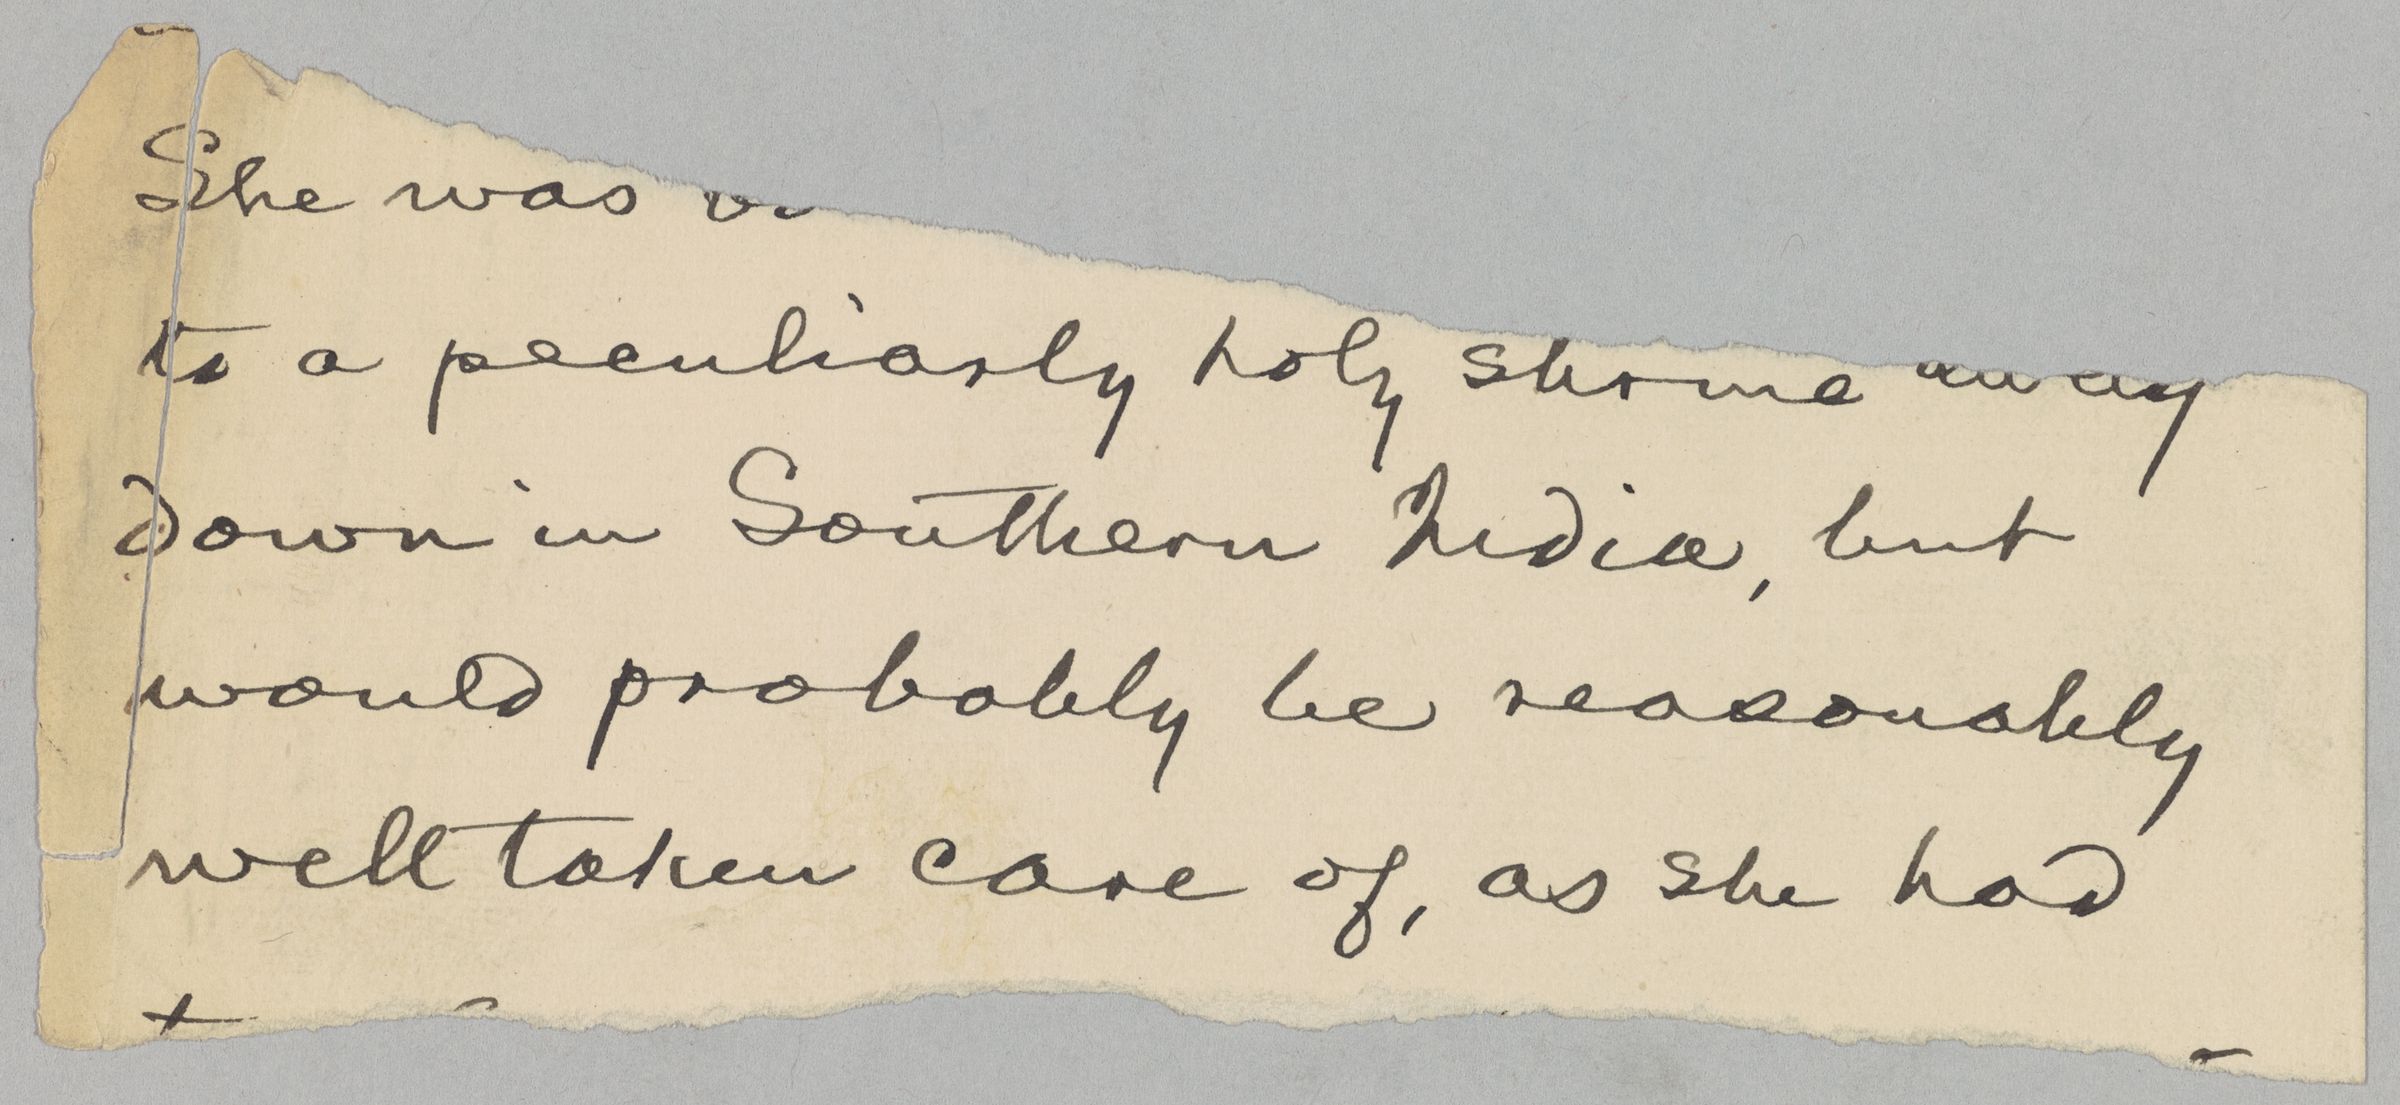 She was
to a peculiarly holy shrine away
down in Southern India, but
would probably be reasonably
well taken care of, as she had